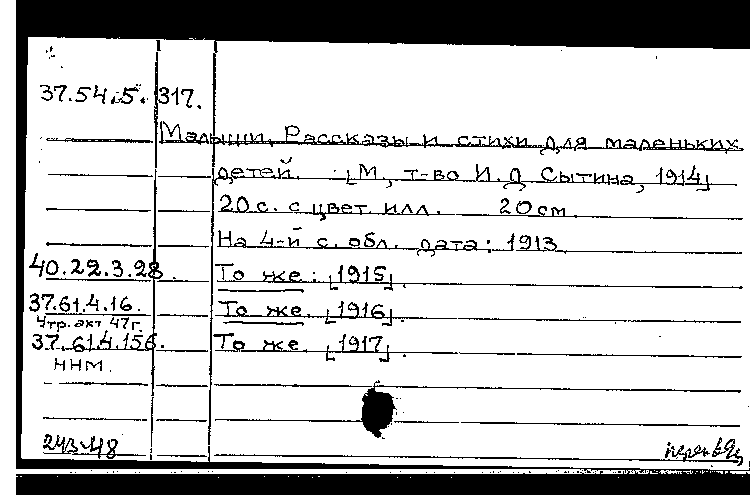 37.54.5. 317.
Малыши. Рассказы и стихи для маленьких
детей. [М., т-во И. Д. Сытина, 1914]
20 с. с цвет. илл. 20 см.
На 4-й с. обл. дата: 1913
40.22.3.28. То же: [1915].
37.61.4.16. То же. [1916].
Утр. акт 47 г.
37.61.4.156. То же. [1917].
ННМ.
243-48